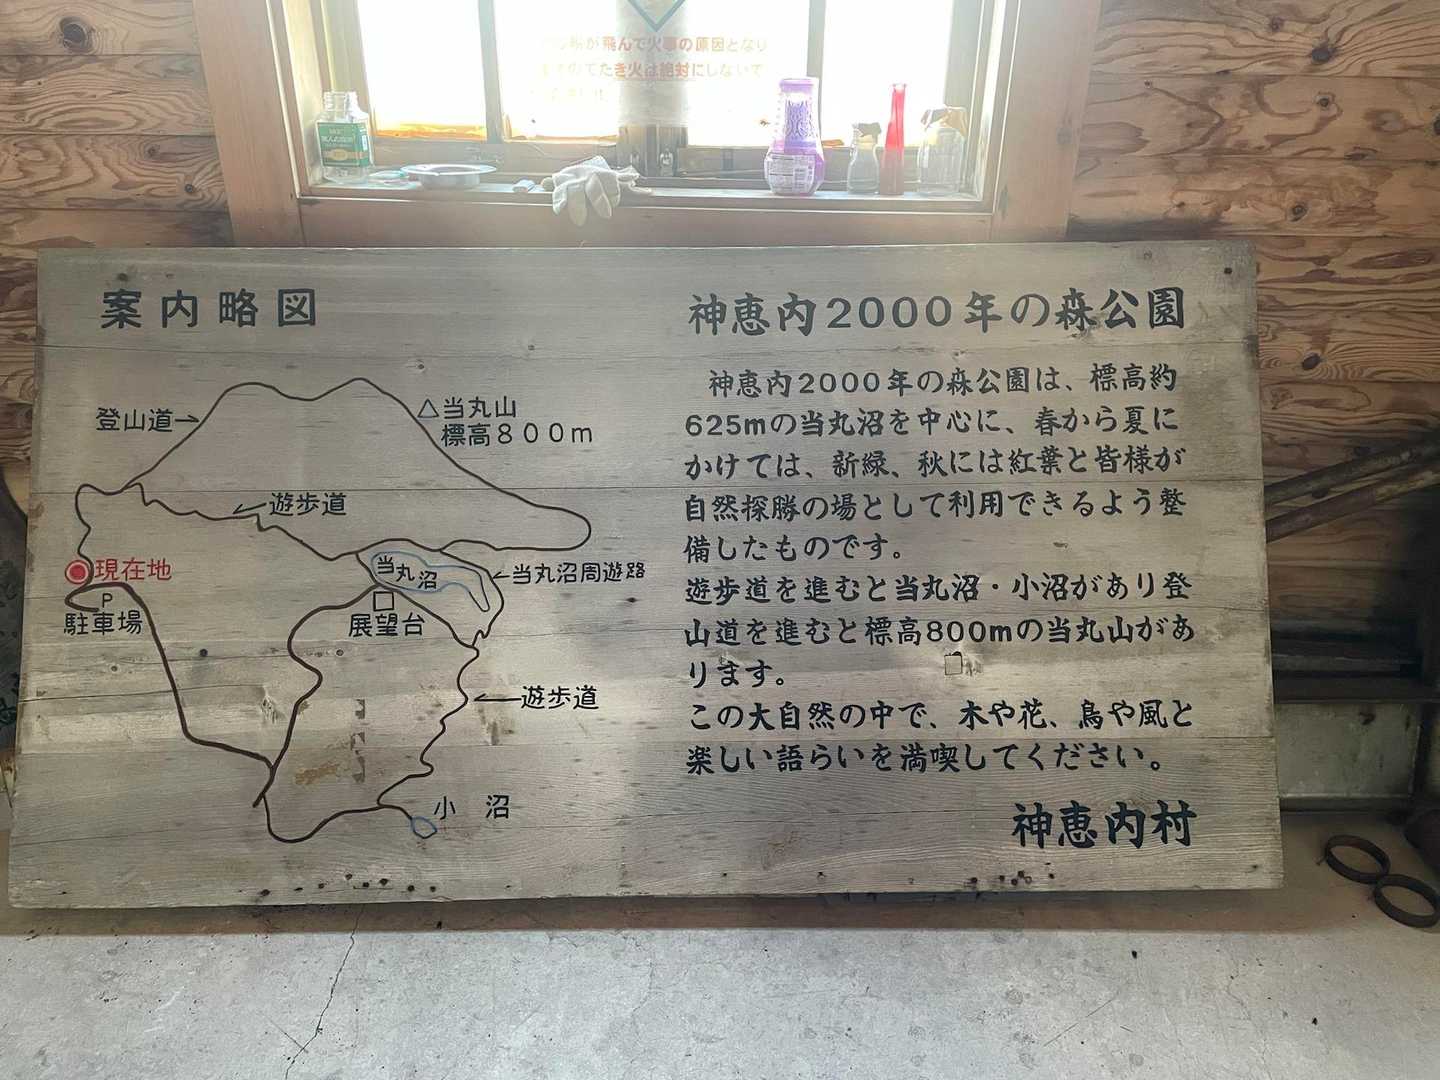 が飛んで火事の原因となり
たき火は絶対にしないで
案内略図
登山道
△当丸山
標高800m
遊歩道
現在地
P
駐車場
当丸沼
当丸沼周遊路
展望台
遊歩道
小沼
神恵内2000年の森公園
神恵内2000年の森公園は、標高約
625mの当丸沼を中心に、春から夏に
かけては、新緑、秋には紅葉と皆様が
自然探勝の場として利用できるよう整
備したものです。
遊歩道を進むと当丸沼・小沼があり登
山道を進むと標高800mの当丸山があ
ります。
この大自然の中で、木や花、鳥や風と
楽しい語らいを満喫してください。
神恵内村